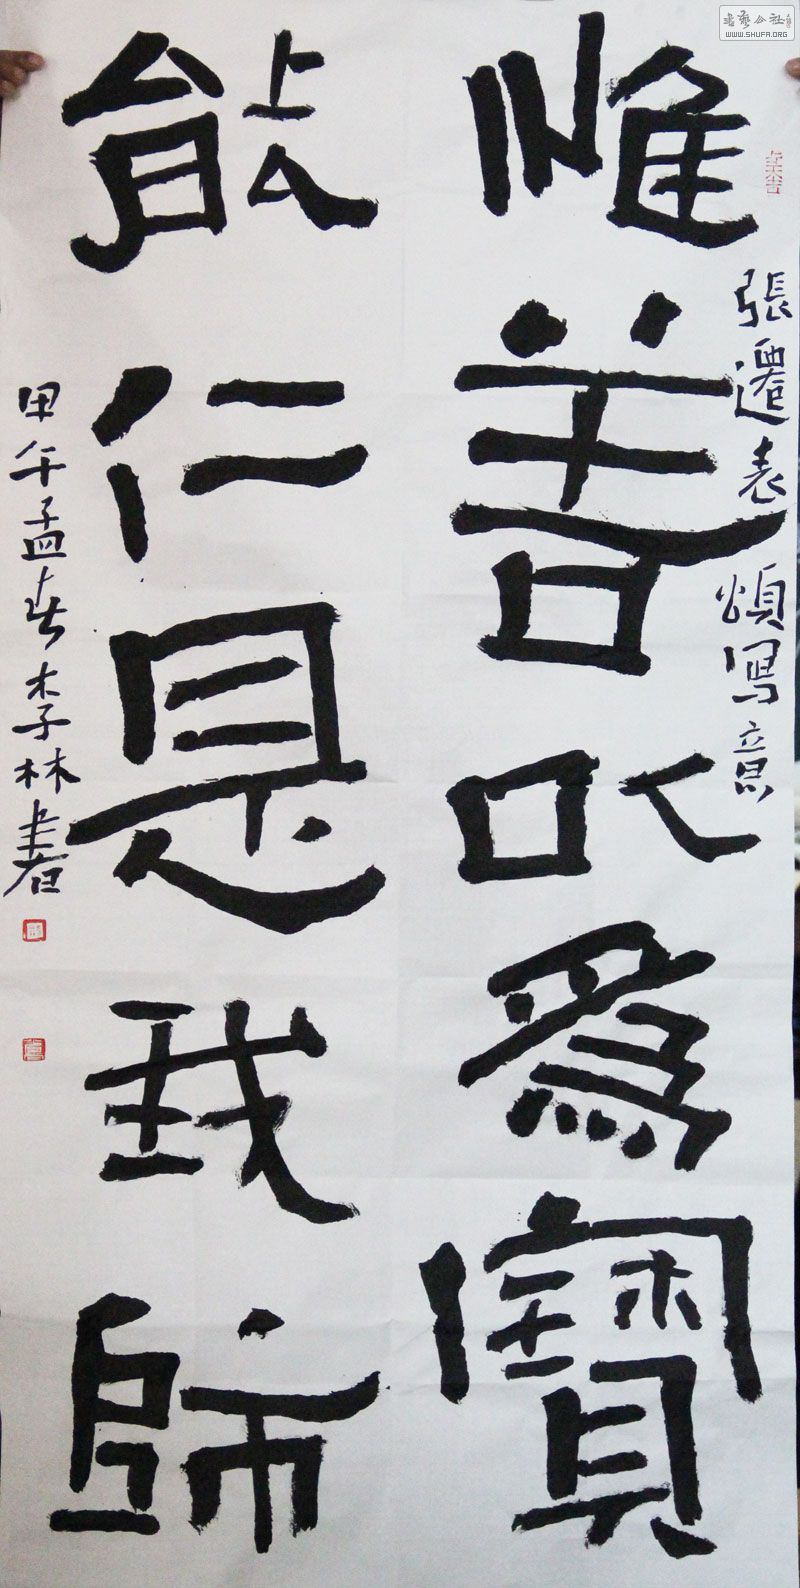 惟善以為寶
能仁是我師
張遷表頌寫意
甲午孟春李林書
書艺公社
WWW.SHUFA.ORG